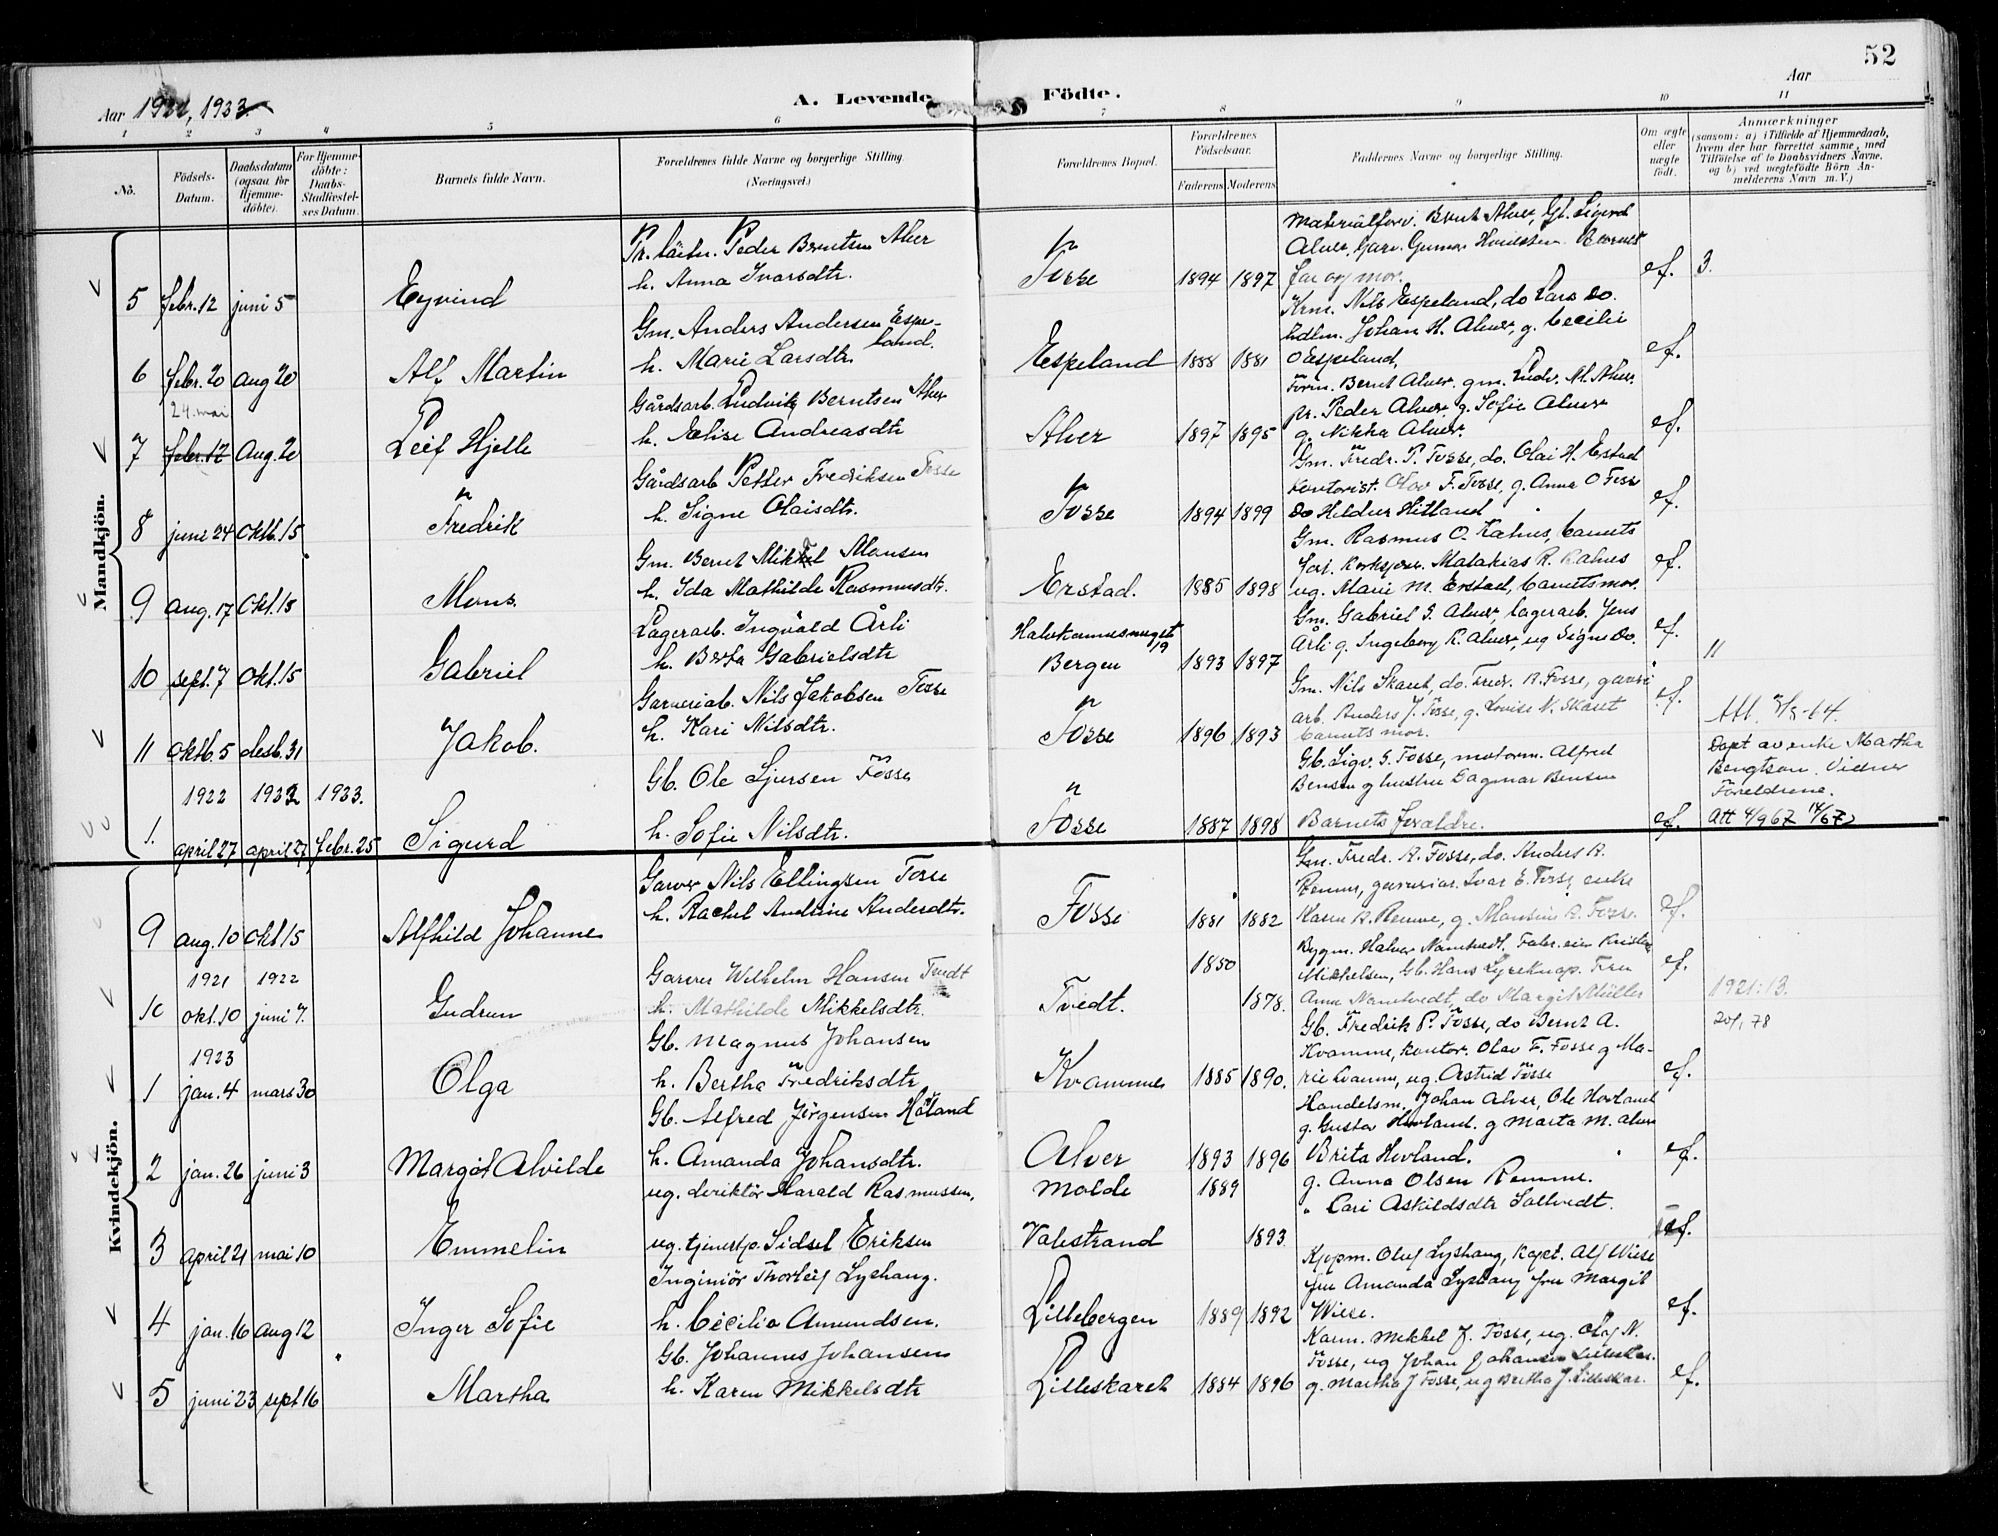 52
Aar 1922, 1923
A. Levende Födte.
Aar
1 2 3 4 5 6 7 8 9 10 11
No. Födsels-Datum. Daabsdatum (ogsaa for Hjemmedöbte). For Hjemmedöbte: Daabs-Stadfæstelses Datum. Barnets fulde Navn. Forældrenes fulde Navne og borgerlige Stilling (Næringsvei.) Forældrenes Bopæl. Forældrenes Födselsaar. Faderens Moderens Faddernes Navne og borgerlige Stilling. Om ægte eller uægte födt. Anmærkninger (saasom: a) i Tilfælde af Hjemmedaab, hvem der har forrettet samme, med Tilföielse af to Daabsvidners Navne, og b) ved uægtefödte Börn Anmelderens Navn m. V.)
Mandkjön.
5 febr. 12 juni 5 Eyvind
Peder Berntsen Alver
h. Anna Ivarsdtr.
Fosse 1894 1897
Bernt Alver, Gb. Sigurd
Alver, Garv. Gunnar
far og mor.
ef. 3.
6 febr. 20 aug 20 Alf Martin
Gm. Anders Andersen Espeland.
h. Marie Larsdtr
Espeland 1888 1881
Krm. Nils Espeland, do Lars do.
hdlm. Johan H. Alver, g. Cecilie
O Espeland,
ef.
24. mai
7 febr. 12 Aug. 20 Leif Hjelle
Gårdsarb. Ludvik Berntsen Alver
h. Elise Andreasdtr
Alver 1897 1895
Form. Bernt Alver. gm. Ludv. M. Alver.
pr. Peder Alver g. Sofie Alver
g. Nikka Alver.
ef.
8 juni 24 oktb. 15 Fredrik
Gårdsarb Petter Fredriksen Fosse
h. Signe Olaisdtr.
Fosse 1894 1899
Gm. Fredr. P. Fosse, do. Olai H. Erstad
Kontorist. Olav F. Fosse, g. Anna O Fosse
do Hildur Hitland
ef.
9 aug. 17 Okt. 15 Mons.
Gm. Bernt Mikkel Monsen
h. Ida Mathilde Rasmusdtr.
Erstad. 1885 1898
Gm. Rasmus O. Kahus, barnets
far, Malakias R. Kahus
ug. Marie M. Erstad, barnets mor.
ef.
10 sept. 7 Okt. 15 Gabriel
Lagerarb. Ingvald Årli
h. Berta Gabrielsdtr
Bergen 1893 1897
Gm. Gabriel S. Alver, lagerarb. Jens
Årli g. Ingeborg R. Alver, ug Signe do.
ef. 11
11 oktb. 5 desb. 31 Jakob.
Garveriarb. Nils Jakobsen Fosse
h. Kari Nilsdtr.
Fosse 1896 1893
Gm. Nils Skaret, do. Fredr. R. Fosse, garveri
arb. Anders J. Fosse, g. Lovise N. Skåret
barnets mor.
ef.
1922 1922 1923.
1. april 27 april 27 febr. 25 Sigurd
Gb. Ole Sjursen Fosse
h. Sofie Nilsdtr.
Fosse 1887 1898
Gb. Sigv. S. Fosse, motorm. Alfred
Bensen g hustru Dagmar Bensen
Barnets foreldre.
ef.
Døpt av enke Martha
Bengtson. Vidner
Foreldrene.
Att 4/9 67
Kvindekjön.
9 aug. 10 okt 15 Alfhild Johanne
Garver Nils Ellingsen Fosse
h. Rachel Andrine Andersdtr.
Fosse 1881 1882
Gm. Fredr. R. Fosse, do. Anders R.
Remme, garveriar. Ivar E. Fosse, enke
Karen R. Remme, g. Monsine R. Fosse.
ef.
1921 1922
10 okt. 10 juni 7. Gudrun
Garver Wilhelm Hansen Tvedt
h. Mathilde Mikkelsdtr.
Tvedt. 1850 1878.
Bygm. Halvor Namtvedt, Fabr. eier Kristen
Mikkelsen, Gb. Hans Lyreknap. Fru
Anna Namtvedt, do Margit Müller
ef. 1921: 13.
20/1 78
1923
1 jan. 4 mars 30 Olga
Gb. Magnus Johansen
h. Bertha Fredriksdtr
Kvamme 1885 1890.
Gb. Fredrik P. Fosse, do Bernt A.
Kvamme, kontor. Olav F. Fosse g Ma-
rie Kvamme, ug. Astrid Fosse
ef.
2 jan. 26 juni 3 Margot Alvilde
Gb. Alfred Jørgensen Håland
h. Amanda Johansdtr.
Alver 1893 1896
Handelsm. Johan Alver, Ole Hovland
g. Gustav Hovland. g Marta M. Alver
Brita Hovland.
ef.
3 april 21 mai 10 Emmelin
ug. deriktör Harald Rasmussen,
ug. tjenestp. Sidsel Eriksen
Molde 1889
Valestrand 1893
g. Anna Olsen Remme.
" Kari Askildsdtr Saltvedt.
4 jan. 16 aug 12 Inger Sofie
Inginiör Thorleif Lyshaug.
h. Cecilia Amundsen.
Lillebergen 1889 1892
Kjøpm. Oluf Lyshaug, kapt. Alf Wiese
fru Amanda Lyshaug fru Margit
Wiese.
ef.
5 juni 23 sept 16 Martha
Gb. Johannes Johansen
h. Karen Mikkelsdtr
Lilleskaret 1884 1896
Kaarm. Mikkel J. Fosse, ug. Olaf N.
Fosse, ug Johan Johansen Lilleskar.
g. Martha J Fosse, ug Bertha J. Lilleskar.
ef.